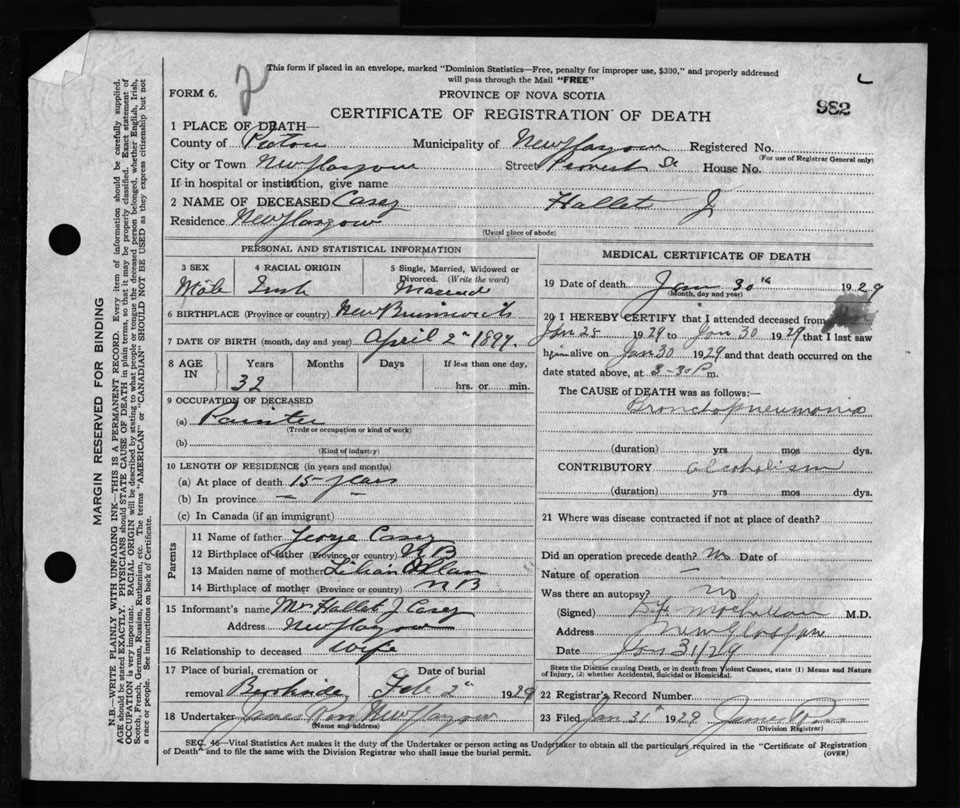 This form if placed in an envelope, marked "Dominion Statistics—Free, penalty for improper use, $300," and properly addressed
will pass through the Mail "FREE"
FORM 6.
2
PROVINCE OF NOVA SCOTIA
982
CERTIFICATE OF REGISTRATION OF DEATH
1 PLACE OF DEATH—
County of Pictou Municipality of New Glasgow Registered No.
(For use of Registrar General only)
City or Town New Glasgow Street House No.
If in hospital or institution, give name
2 NAME OF DECEASED Casey Hallet J
Residence New Glasgow
(Usual place of abode)
PERSONAL AND STATISTICAL INFORMATION
3 SEX 4 RACIAL ORIGIN 5 Single, Married, Widowed or
Divorced. (Write the word)
Male Irish Married
6 BIRTHPLACE (Province or country) New Brunswick
7 DATE OF BIRTH (month, day and year) April 2nd 1897.
8 AGE IN Years Months Days If less than one day,
32 hrs. or min.
9 OCCUPATION OF DECEASED
(a) Painter
(Trade or occupation or kind of work)
(b)
(Kind of industry)
10 LENGTH OF RESIDENCE (in years and months)
(a) At place of death 15 years
(b) In province — —
(c) In Canada (if an immigrant)
Parents
11 Name of father George Casey
12 Birthplace of father (Province or country) N B
13 Maiden name of mother Lilian
14 Birthplace of mother N B
15 Informant's name Mr Hallet J Casey
Address New Glasgow
16 Relationship to deceased wife
17 Place of burial, cremation or Date of burial
removal Brookside Feb 2nd 1929
18 Undertaker James Ross New Glasgow
(Name and address)
MEDICAL CERTIFICATE OF DEATH
19 Date of death Jan 30th 1929
(Month, day and year)
20 I HEREBY CERTIFY that I attended deceased from
Jan 25 1929 to Jan 30 1929 that I last saw
him alive on Jan 30 1929 and that death occurred on
date stated above, at 8-30 P m.
The CAUSE OF DEATH was as follows:—
Bronchopneumonia
(duration) yrs mos dys.
CONTRIBUTORY alcoholism
(duration) yrs mos dys.
21 Where was disease contracted if not at place of death?
Did an operation precede death? No Date of
Nature of operation —
Was there an autopsy? no
(Signed) M.D.
Address New Glasgow
Date Jan 31/29
State the Disease causing Death, or in death from Violent Causes, state (1) Means and Nature
of Injury, (2) whether Accidental, Suicidal or Homicidal.
22 Registrar's Record Number
23 Filed Jan 31st 1929 James Ross
(Division Registrar)
SEC. 46—Vital Statistics Act makes it the duty of the Undertaker or person acting as Undertaker to obtain all the particulars required in the "Certificate of Registration
of Death" and to file the same with the Division Registrar who shall issue the burial permit.
(OVER)
MARGIN RESERVED FOR BINDING
N.B.—WRITE PLAINLY WITH UNFADING INK—THIS IS A PERMANENT RECORD. Every item of information should be carefully supplied.
AGE should be stated EXACTLY. PHYSICIANS should STATE CAUSE OF DEATH in plain terms, so that it may be properly classified. Exact statement of
OCCUPATION is very important. RACIAL ORIGIN will be described by stating to what people or tongue the deceased person belonged, whether English, Irish,
Scotch, French, German, Russian, Ruthenian, etc. The terms "AMERICAN" or "CANADIAN" SHOULD NOT BE USED as they express citizenship but not
a race or people. See instructions on back of Certificate.